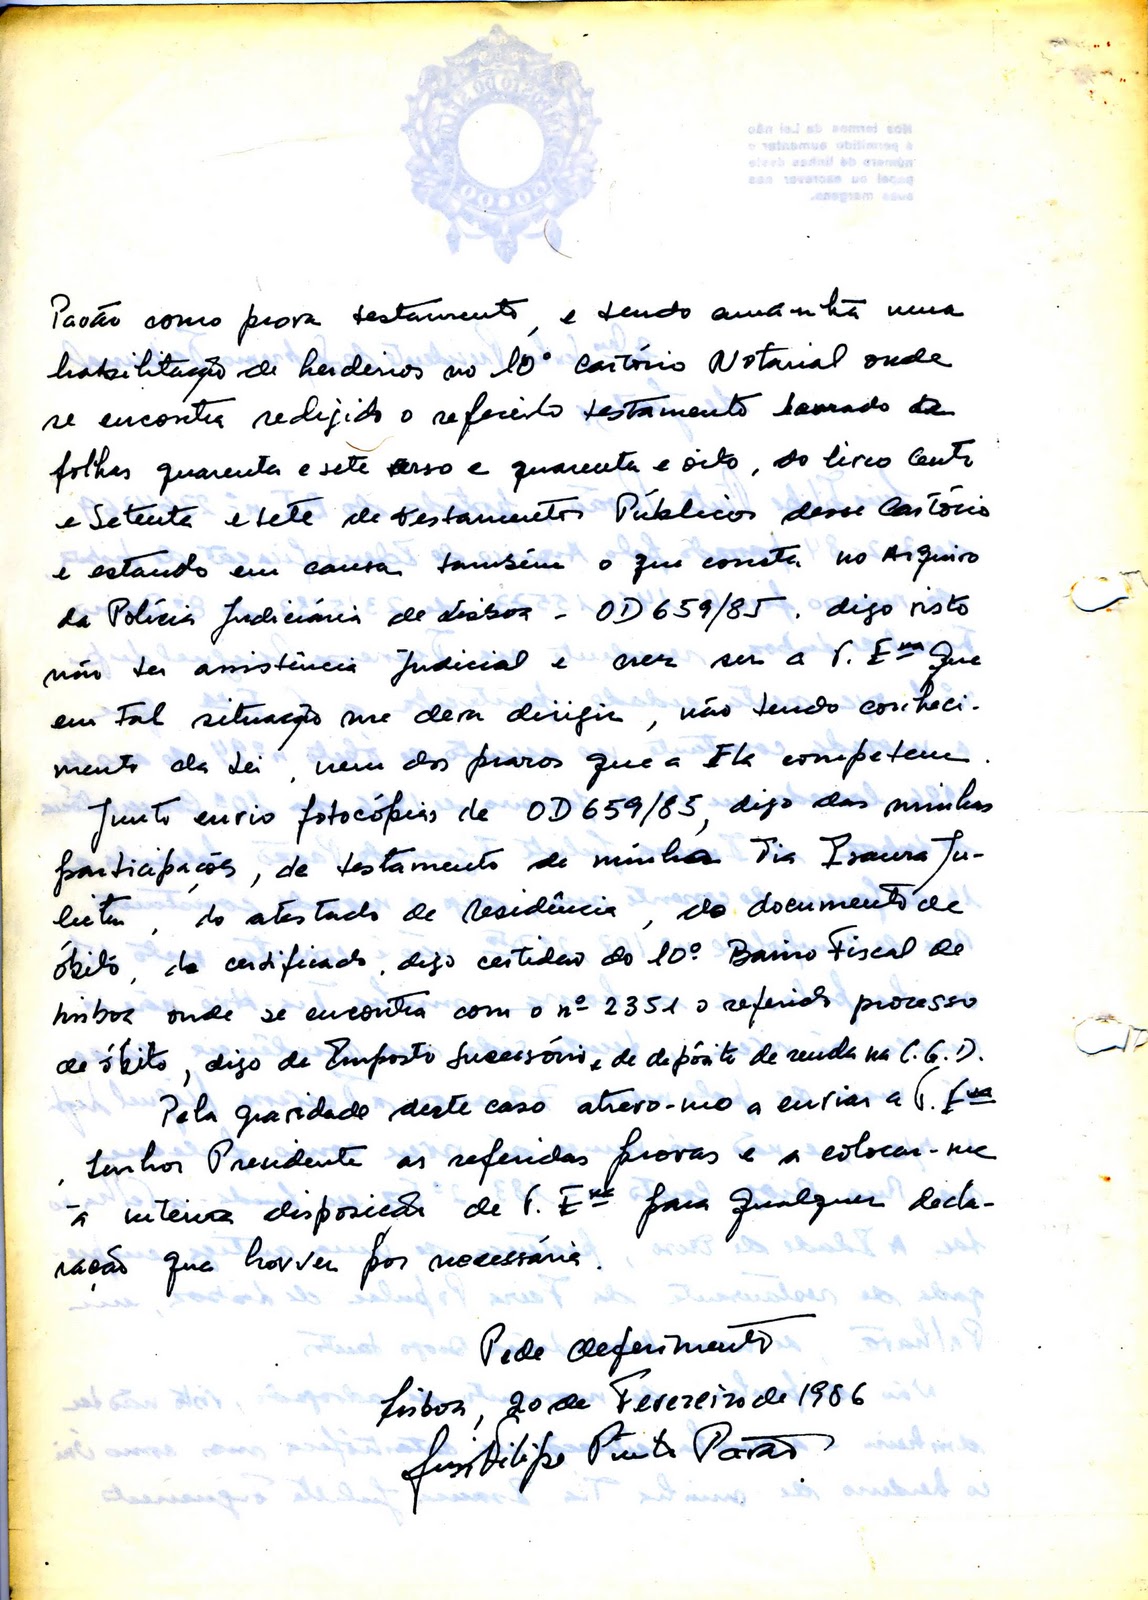 Pavão como prova testamento, e tendo amanhã uma
habilitação de herdeiros no 10º Cartório Notarial onde
se encontra redigido o referido testamento lavrado de
folhas quarenta e sete verso e quarenta e oito, do livro Cento
e Setenta e sete de testamentos Públicos desse Cartório
e estando em causa também o que consta no Arquivo
da Polícia Judiciária de Lisboa - OD 659/85, digo visto
não ter assistência Judicial e crer ser a V. Exª que
em tal situação me deva dirigir, não tendo conheci-
mento da Lei, nem dos prazos que a Ela competem.
Junto envio fotocópias de OD 659/85, digo das minhas
participações, de testamento de minha Tia Isaura Ju-
lieta, do atestado de residência, do documento de
óbito, de certificado, digo certidão do 10º Bairro Fiscal de
Lisboa onde se encontra com o nº 2351 o referido processo
de óbito, digo de Imposto Sucessório, e de depósito de renda na C.G.D.
Pela gravidade deste caso atrevo-me a enviar a V. Exª
, Senhor Presidente as referidas provas e a colocar-me
à inteira disposição de V. Exª para qualquer decla-
ração que houver por necessária.
Pede deferimento
Lisboa, 20 de Fevereiro de 1986
Luís Filipe Pinto Pavão
Nos termos da Lei não
é permitido aumentar o
número de linhas deste
papel ou escrever nas
suas margens.